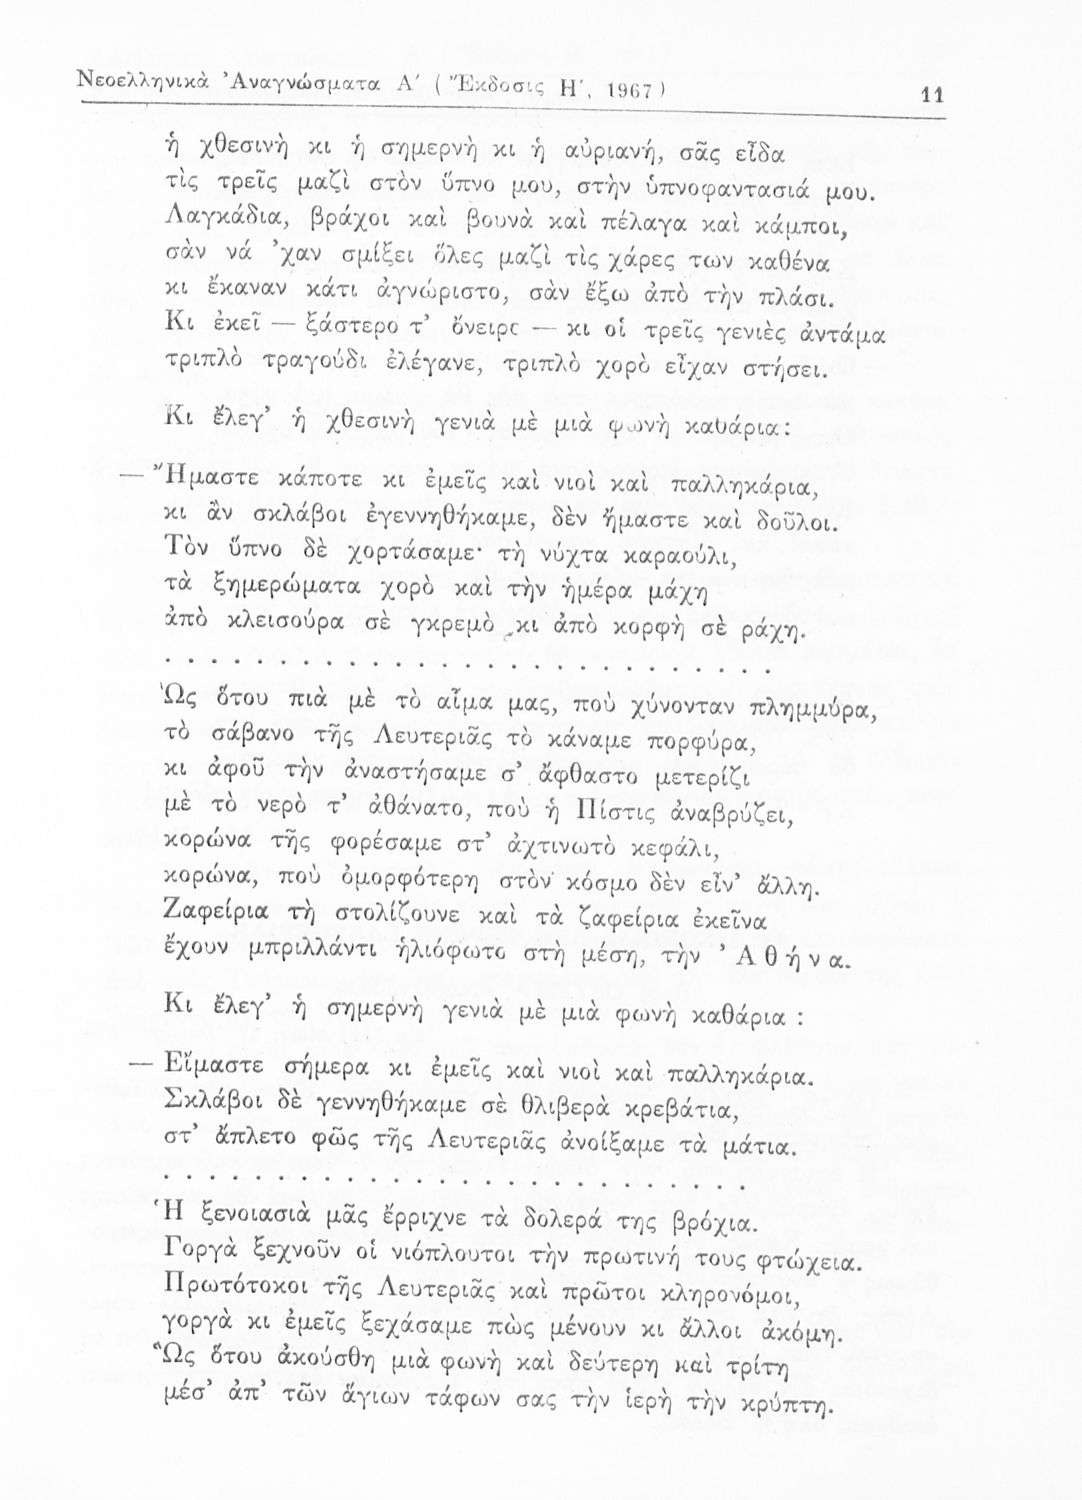 Νεοελληνικὰ Ἀναγνώσματα Α΄ (Ἔκδοσις Η΄, 1967) 11
ἡ χθεσινὴ κι ἡ σημερνὴ κι ἡ αὐριανή, σᾶς εἶδα
τὶς τρεῖς μαζὶ στὸν ὕπνο μου, στὴν ὑπνοφαντασιά μου.
Λαγκάδια, βράχοι καὶ βουνὰ καὶ πέλαγα καὶ κάμποι,
σὰν νά ᾽χαν σμίξει ὅλες μαζὶ τὶς χάρες των καθένα
κι ἔκαναν κάτι ἀγνώριστο, σὰν ἔξω ἀπὸ τὴν πλάσι.
Κι ἐκεῖ — ξάστερο τ᾽ ὄνειρο — κι οἱ τρεῖς γενιὲς ἀντάμα
τριπλὸ τραγούδι ἐλέγανε, τριπλὸ χορὸ εἶχαν στήσει.
Κι ἔλεγ᾽ ἡ χθεσινὴ γενιὰ μὲ μιὰ φωνὴ καθάρια:
— Ἤμαστε κάποτε κι ἐμεῖς καὶ νιοὶ καὶ παλληκάρια,
κι ἂν σκλάβοι ἐγεννηθήκαμε, δὲν ἤμαστε καὶ δοῦλοι.
Τὸν ὕπνο δὲ χορτάσαμε· τὴ νύχτα καραούλι,
τὰ ξημερώματα χορὸ καὶ τὴν ἡμέρα μάχη
ἀπὸ κλεισούρα σὲ γκρεμὸ κι ἀπὸ κορφὴ σὲ ράχη.
. . . . . . . . . . . . . . . . . . . . . . . . . . .
Ὡς ὅτου πιὰ μὲ τὸ αἷμα μας, ποὺ χύνονταν πλημμύρα,
τὸ σάβανο τῆς Λευτεριᾶς τὸ κάναμε πορφύρα,
κι ἀφοῦ τὴν ἀναστήσαμε σ᾽ ἄφθαστο μετερίζι
μὲ τὸ νερὸ τ᾽ ἀθάνατο, ποὺ ἡ Πίστις ἀναβρύζει,
κορώνα τῆς φορέσαμε στ᾽ ἀχτινωτὸ κεφάλι,
κορώνα, ποὺ ὀμορφότερη στὸν κόσμο δὲν εἶν᾽ ἄλλη.
Ζαφείρια τὴ στολίζουνε καὶ τὰ ζαφείρια ἐκεῖνα
ἔχουν μπριλλάντι ἡλιόφωτο στὴ μέση, τὴν Ἀ θ ή ν α.
Κι ἔλεγ᾽ ἡ σημερνὴ γενιὰ μὲ μιὰ φωνὴ καθάρια :
— Εἴμαστε σήμερα κι ἐμεῖς καὶ νιοὶ καὶ παλληκάρια.
Σκλάβοι δὲ γεννηθήκαμε σὲ θλιβερὰ κρεβάτια,
στ᾽ ἄπλετο φῶς τῆς Λευτεριᾶς ἀνοίξαμε τὰ μάτια.
. . . . . . . . . . . . . . . . . . . . . . . . . .
Ἡ ξενοιασιὰ μᾶς ἔρριχνε τὰ δολερά της βρόχια.
Γοργὰ ξεχνοῦν οἱ νιόπλουτοι τὴν πρωτινή τους φτώχεια.
Πρωτότοκοι τῆς Λευτεριᾶς καὶ πρῶτοι κληρονόμοι,
γοργὰ κι ἐμεῖς ξεχάσαμε πὼς μένουν κι ἄλλοι ἀκόμη.
Ὣς ὅτου ἀκούσθη μιὰ φωνὴ καὶ δεύτερη καὶ τρίτη
μέσ᾽ ἀπ᾽ τῶν ἅγιων τάφων σας τὴν ἱερὴ τὴν κρύπτη.